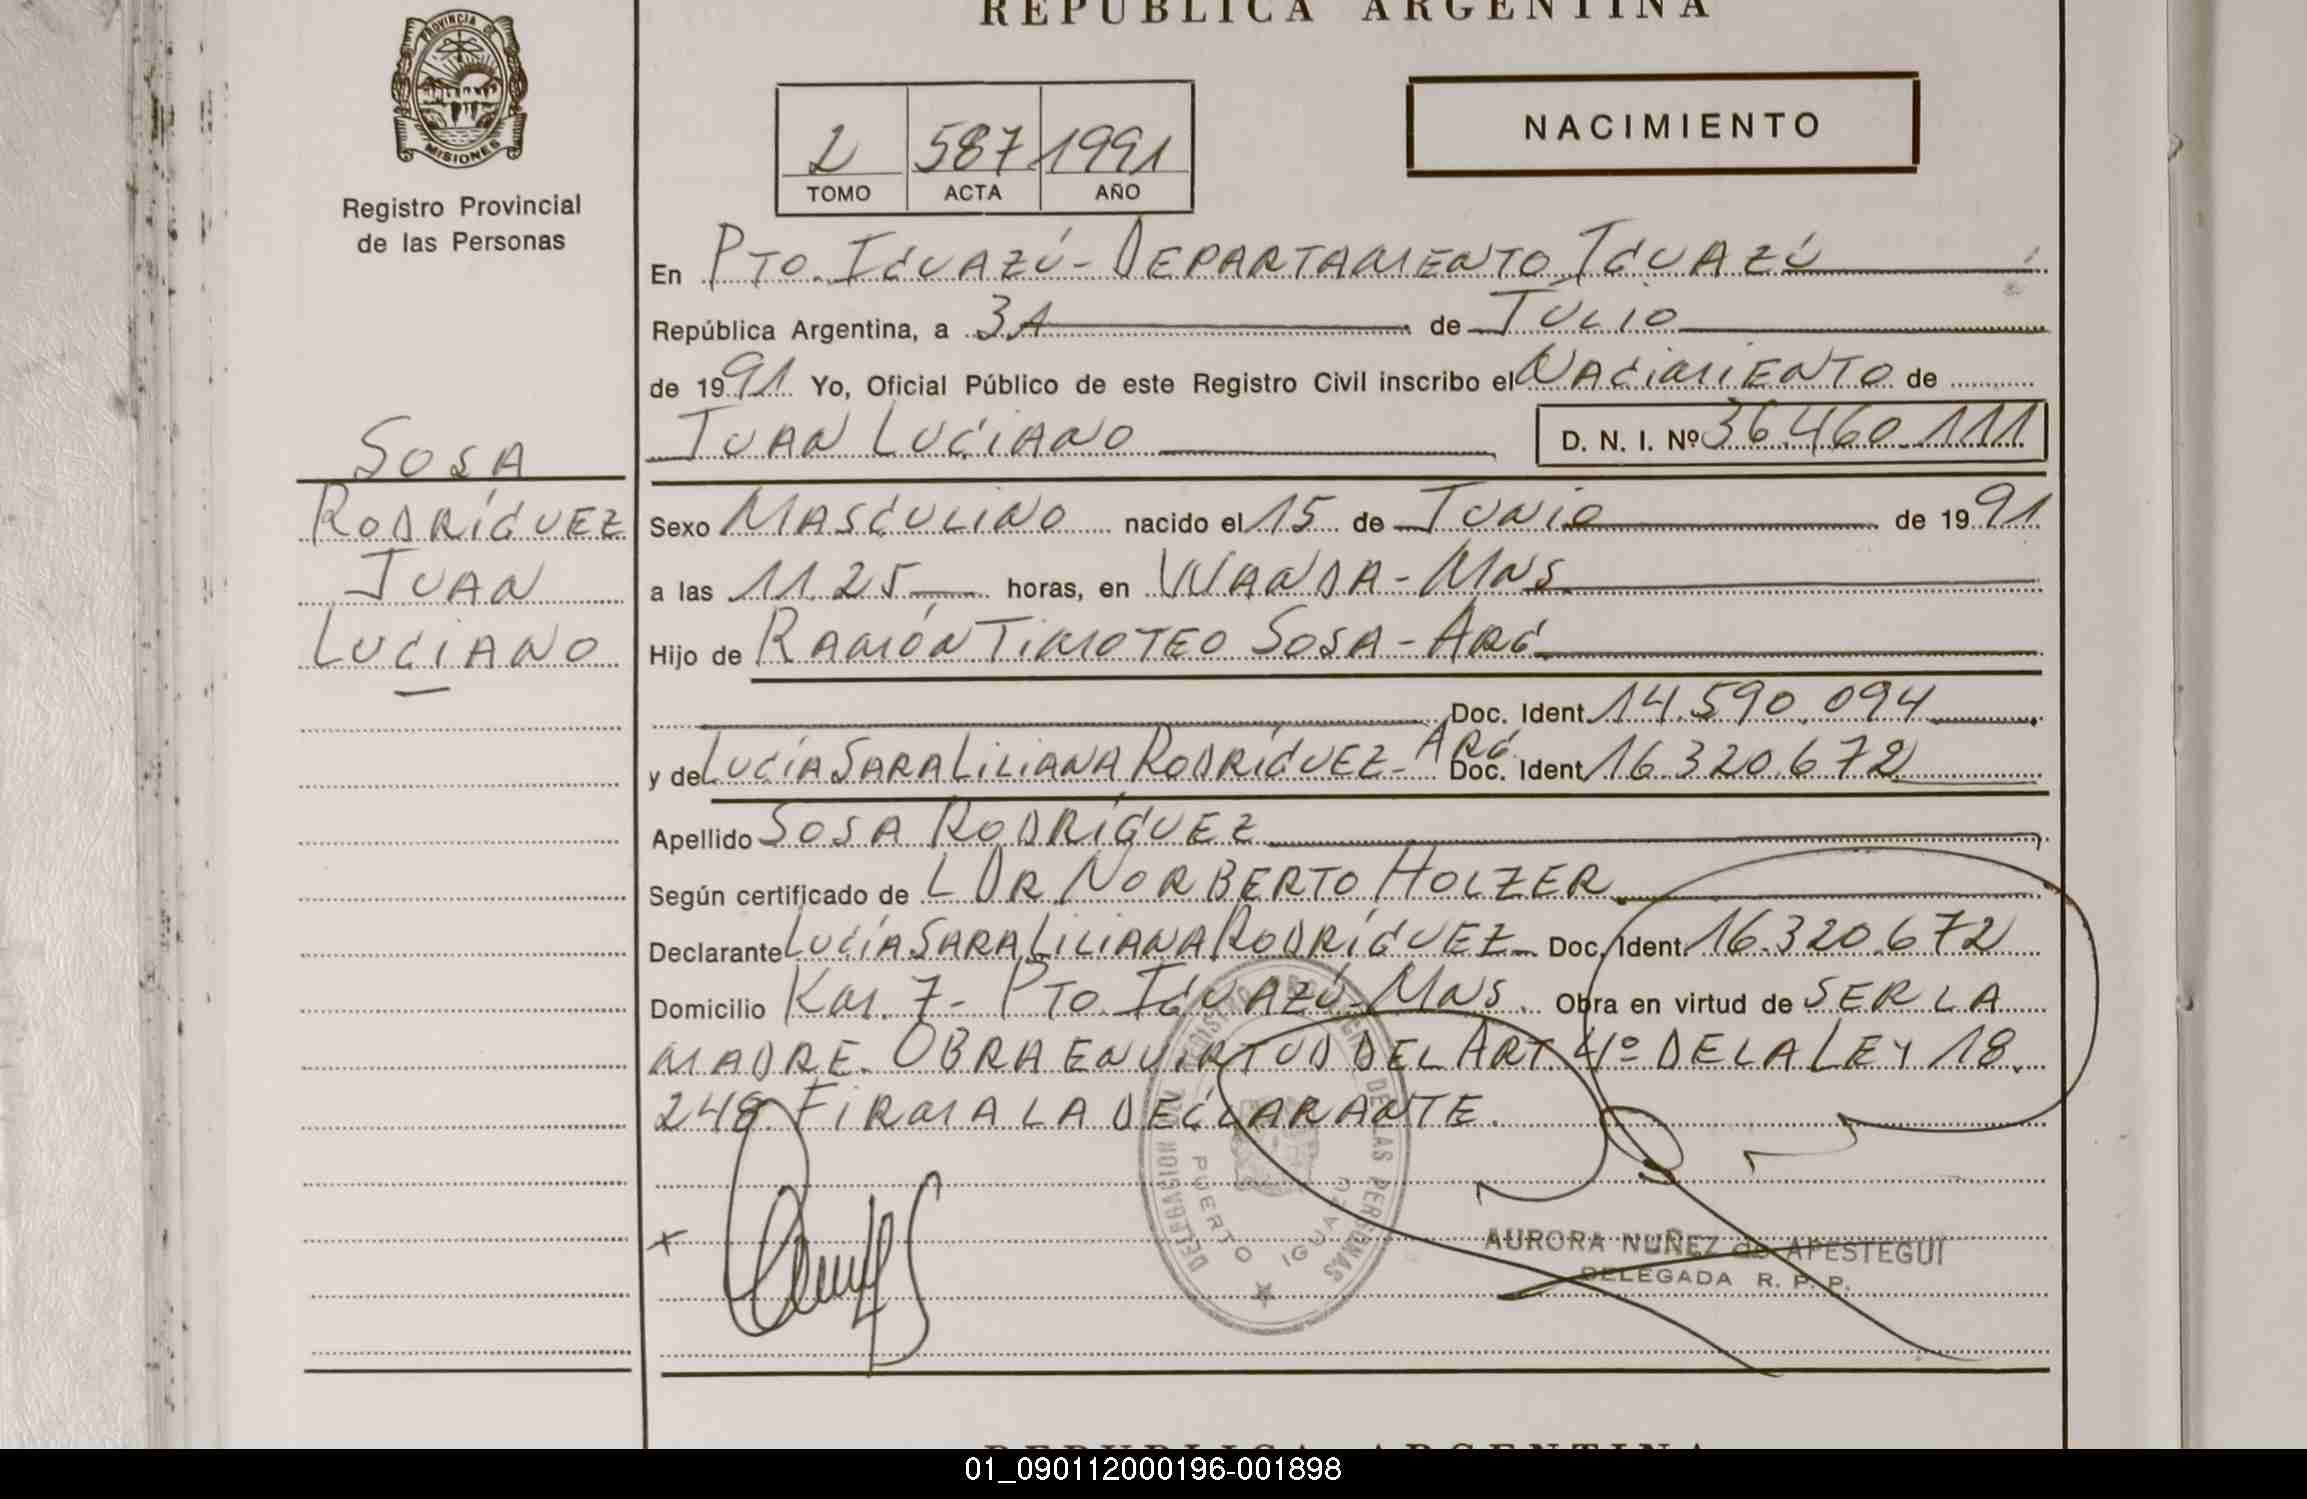 REPUBLICA ARGENTINA
PROVINCIA DE
MISIONES
Registro Provincial
de las Personas
2 587 1991
TOMO ACTA AÑO
NACIMIENTO
En PTO. IGUAZÚ - DEPARTAMENTO IGUAZÚ
República Argentina, a 31 de JULIO
de 1991 Yo, Oficial Público de este Registro Civil inscribo el NACIMIENTO de
JUAN LUCIANO D. N. I. Nº 36.460.111
SOSA
RODRÍGUEZ
JUAN
LUCIANO
Sexo MASCULINO nacido el 15 de JUNIO de 1991
a las 11.25 horas, en WANDA - MNS
Hijo de RAMÓN TIMOTEO SOSA - ARG
Doc. Ident. 14.590.094
y de LUCÍA SARA LILIANA RODRÍGUEZ - ARG. Doc. Ident. 16.320.672
Apellido SOSA RODRÍGUEZ
Según certificado de L DR NORBERTO HOLZER
Declarante LUCÍA SARA LILIANA RODRÍGUEZ Doc. Ident. 16.320.672
Domicilio KM. 7 - PTO. IGUAZÚ - MNS. Obra en virtud de SER LA
MADRE. OBRA EN VIRTUD DEL ART. 4º DE LA LEY 18.
248. FIRMA LA DECLARANTE.
DELEGACION REGISTRO PROVINCIAL DE LAS PERSONAS
PUERTO IGUAZU
AURORA NUÑEZ de APESTEGUI
DELEGADA R. P. P.
REPUBLICA ARGENTINA
01_090112000196-001898